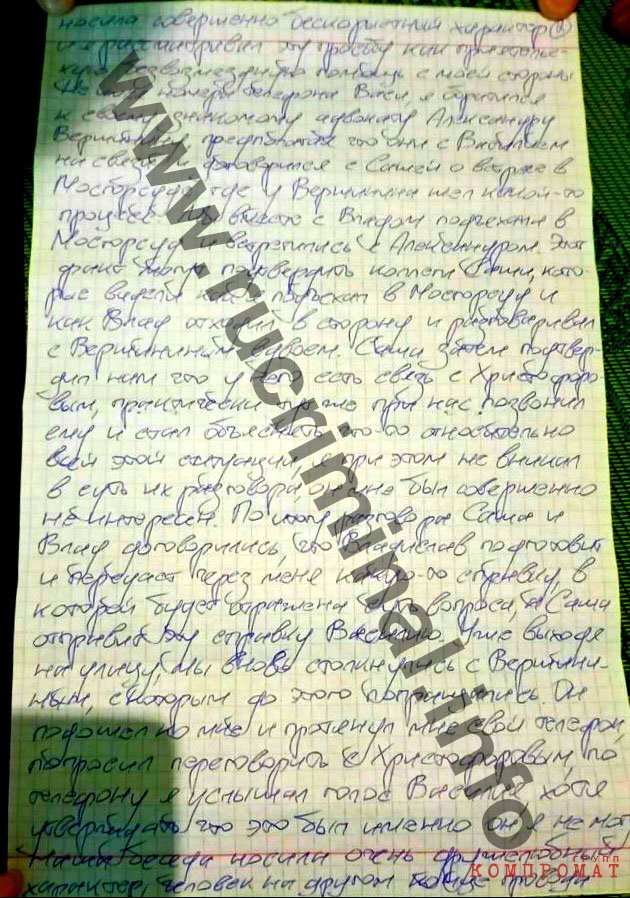 носила совершенно бескорыстный характер
и я рассматривал эту просьбу как приятельс-
кую безвозмездную помощь с моей стороны
Не имея номера телефона Васи, я обратился
к своему знакомому адвокату Александру
Вершинину предполагая что они с
на связи и договорился с Сашей о встрече в
Мосгорсуде, где у Вершинина шел какой-то
процесс. Мы вместе с Владом подъехали в
Мосгорсуд и встретились с Александром. Этот
факт могут подтвердить коллеги Саши, кото-
рые видели как я подъехал в Мосгорсуд и
как Влад отходил в сторону и разговаривал
с Вершининым вдвоем. Саша затем подтвер-
дил нам что у него есть связь с Христофоро-
вым, практически тут же при нас позвонил
ему и стал объяснять что-то относительно
всей этой ситуации, я при этом не вникал
в суть их разговора он мне был совершенно
не интересен. По итогу разговора Саша и
Влад договорились, что Владислав подготовит
и передаст через меня какую-то справку, в
которой будет отражена суть вопроса, а Саша
отправит эту справку Василию. Уже выходя
на улицу, мы вновь столкнулись с Вершини-
ным, с которым до этого попрощались. Он
подошел ко мне и протянул мне свой телефон,
попросил переговорить с Христофоровым, по
телефону я услышал голос Василия хотя
утверждать что это был именно он я не мог
Наша беседа носила очень дружелюбный
характер, человек на другом конце провода
www.rucriminal.info
групп
КОМПРОМАТ